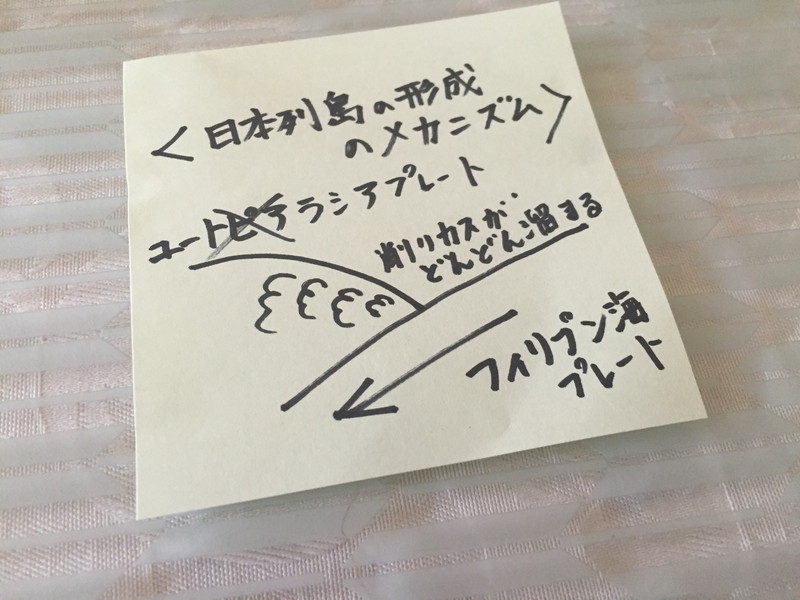 <日本列島の形成
のメカニズム>
ユートピアラシアプレート
削りカスが
どんどん溜まる
フィリプン海
プレート